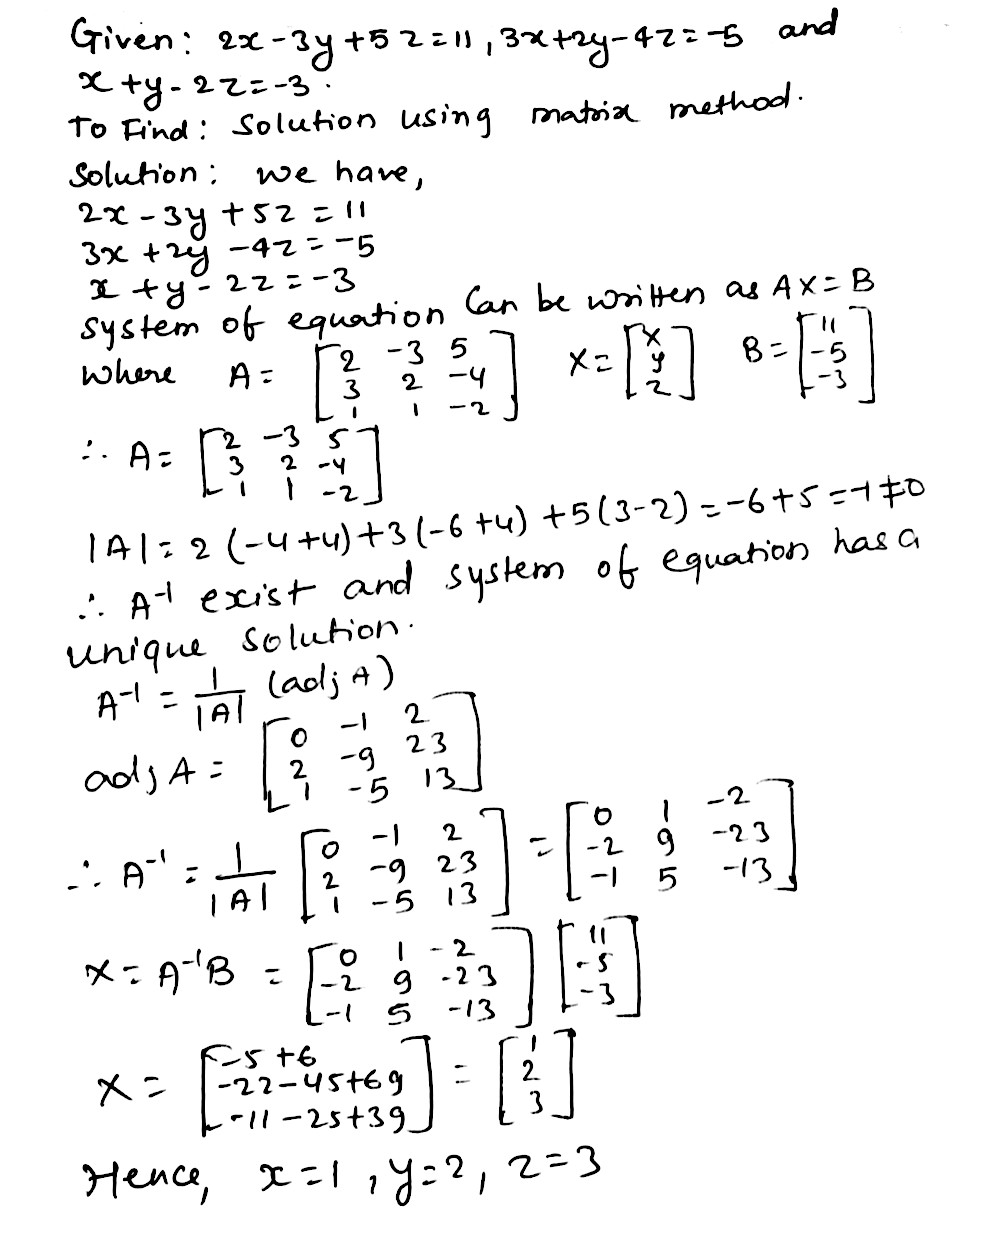 Given: 2x-3y+5z=11, 3x+2y-4z=-5 and
x+y-2z=-3.
To Find: Solution using matrix method.
Solution: we have,
2x-3y+5z=11
3x+2y-4z=-5
x+y-2z=-3
System of equation Can be written as AX=B
where A= [2 -3 5 X= [x B= [11
3 2 -4 y -5
1 1 -2] z] -3]
∴ A= [2 -3 5
3 2 -4
1 1 -2]
|A|=2(-4+4)+3(-6+4)+5(3-2)=-6+5=-1≠0
∴ A⁻¹ exist and system of equation has a
unique solution.
A⁻¹ = 1/|A| (adj A)
adj A= [0 -1 2
2 -9 23
1 -5 13]
∴ A⁻¹ = 1/|A| [0 -1 2 = [0 1 -2
2 -9 23 -2 9 -23
1 -5 13] -1 5 -13]
X=A⁻¹B = [0 1 -2 [11
-2 9 -23 -5
-1 5 -13] -3]
X= [-5+6 = [1
-22-45+69 2
-11-25+39] 3]
Hence, x=1, y=2, z=3